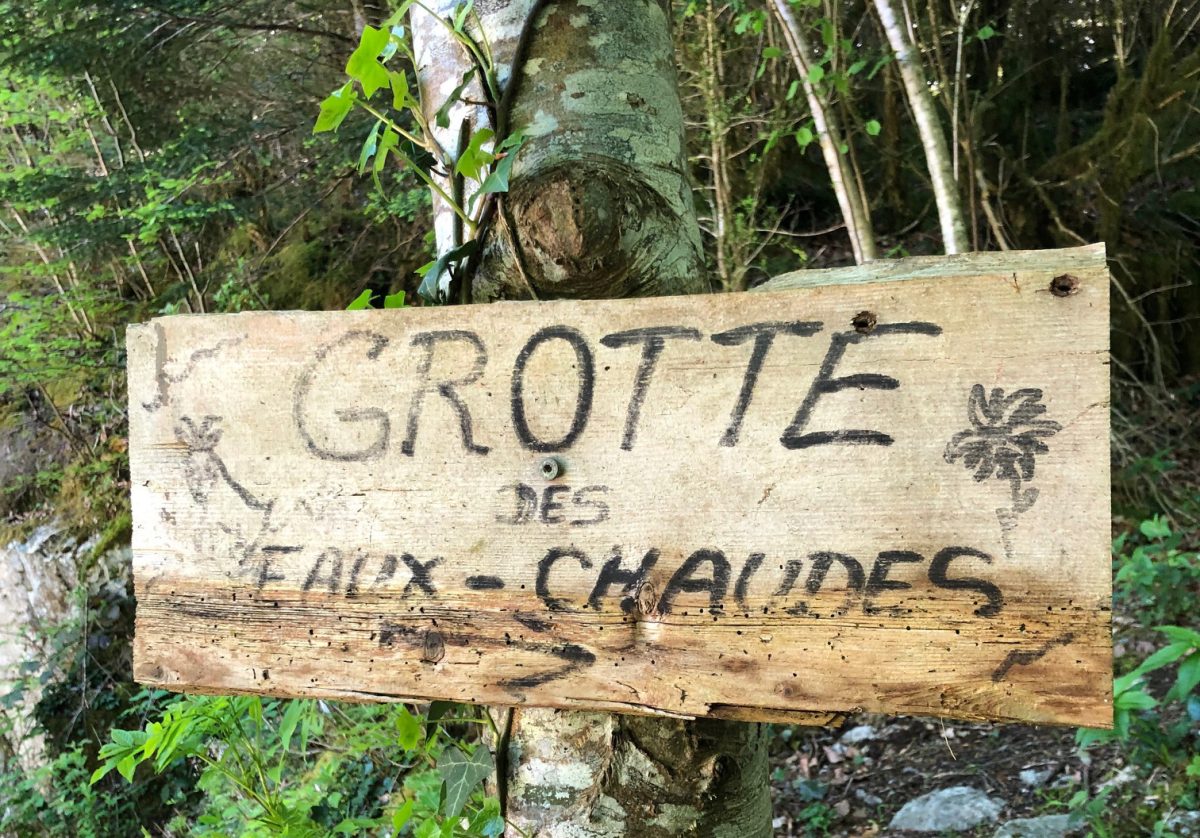 GROTTE
DES
EAUX-CHAUDES